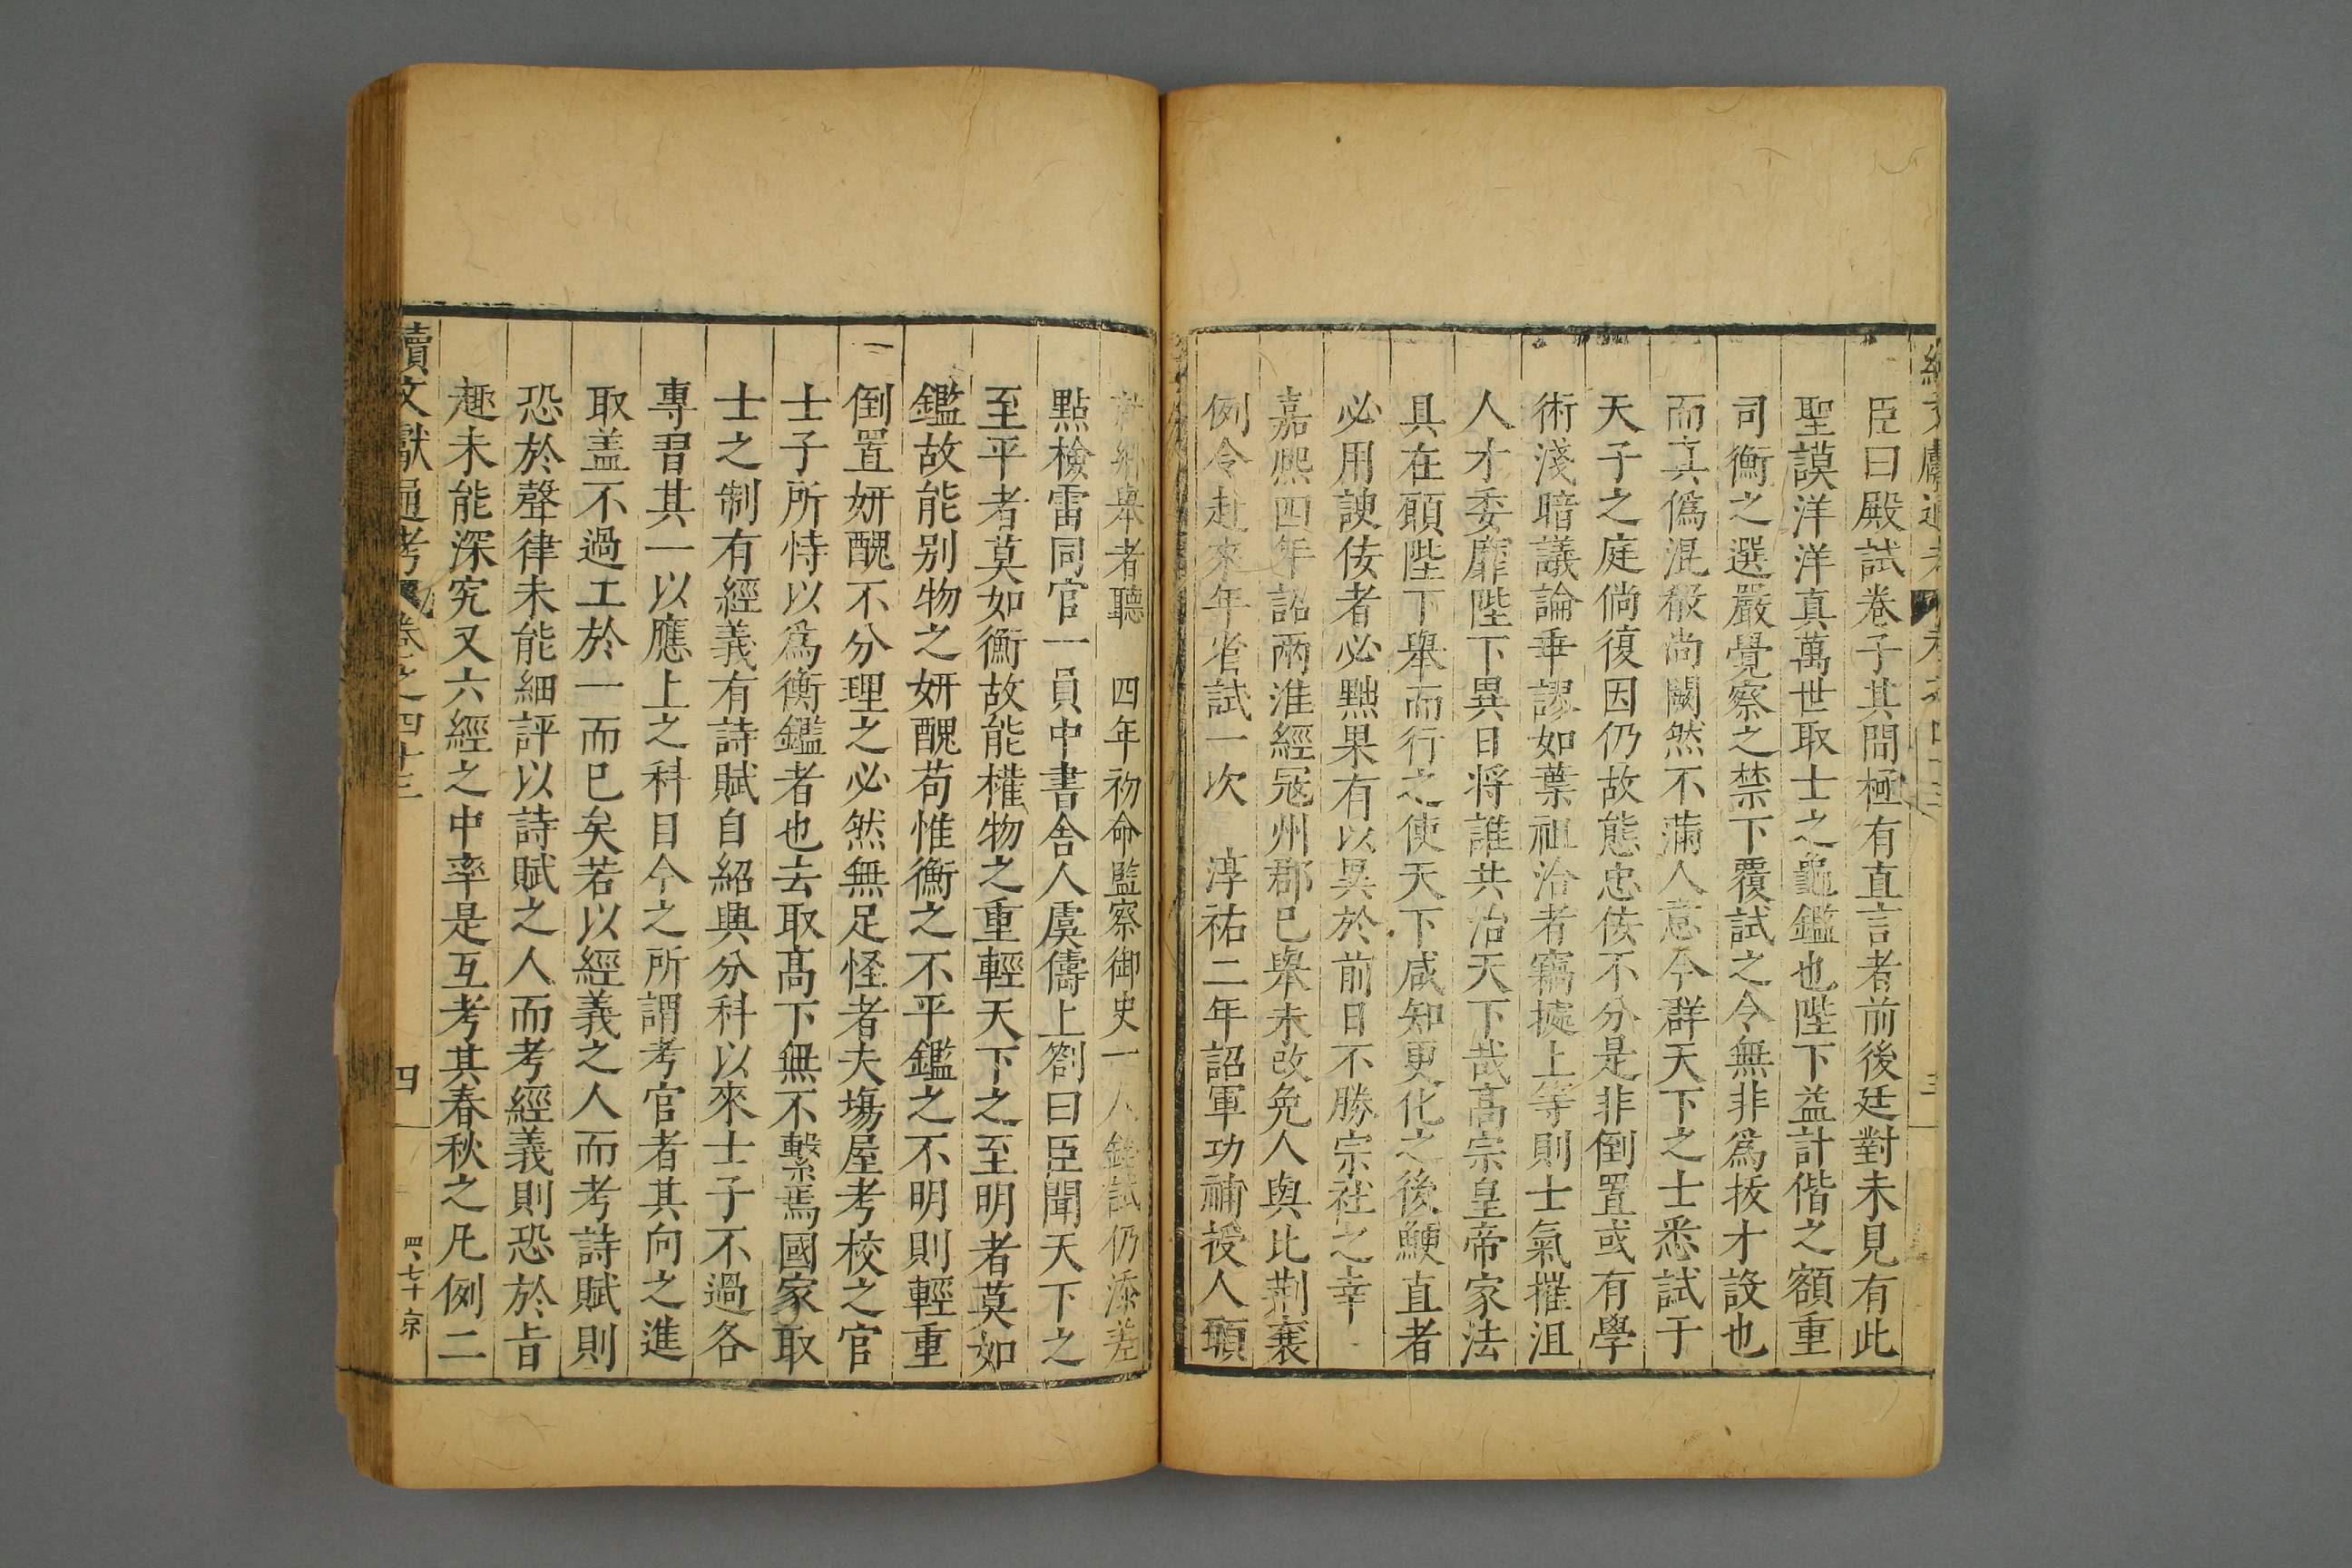 臣曰殿試卷子其間極有直言者前後廷對未見有此
聖謨洋洋真萬世取士之龜鑑也陛下益計偕之額重
司衡之選嚴覺察之禁下覆試之令無非爲拔才設也
而真僞混殽尚闕然不滿人意今群天下之士悉試于
天子之庭倘復因仍故態忠佞不分是非倒置或有學
術淺暗議論乖謬如葉祖洽者竊㨿上等則士氣摧沮
人才委靡陛下異日将誰共治天下哉髙宗皇帝家法
具在願陛下舉而行之使天下咸知更化之後鯁直者
必用諛佞者必黜果有以異於前日不勝宗社之幸
嘉熙四年詔兩淮經冦州郡已舉未改免人與比荆襄
例令赴來年省試一次 淳祐二年詔軍功補授人願
鄉舉者聽 四年初命監察御史一人監試仍添差
點檢雷同官一員中書舍人虞儔上劄曰臣聞天下之
至平者莫如衡故能權物之重輕天下之至明者莫如
鑑故能别物之妍醜苟惟衡之不平鑑之不明則輕重
倒置妍醜不分理之必然無足怪者夫塲屋考校之官
士子所恃以爲衡鑑者也去取髙下無不繫焉國家取
士之制有經義有詩賦自紹興分科以來士子不過各
專習其一以應上之科目今之所謂考官者其向之進
取盖不過工於一而已矣若以經義之人而考詩賦則
恐於聲律未能細評以詩賦之人而考經義則恐於㫖
趣未能深究又六經之中率是互考其春秋之凡例二
續文獻通考 卷之四十三 四 四、七十 京